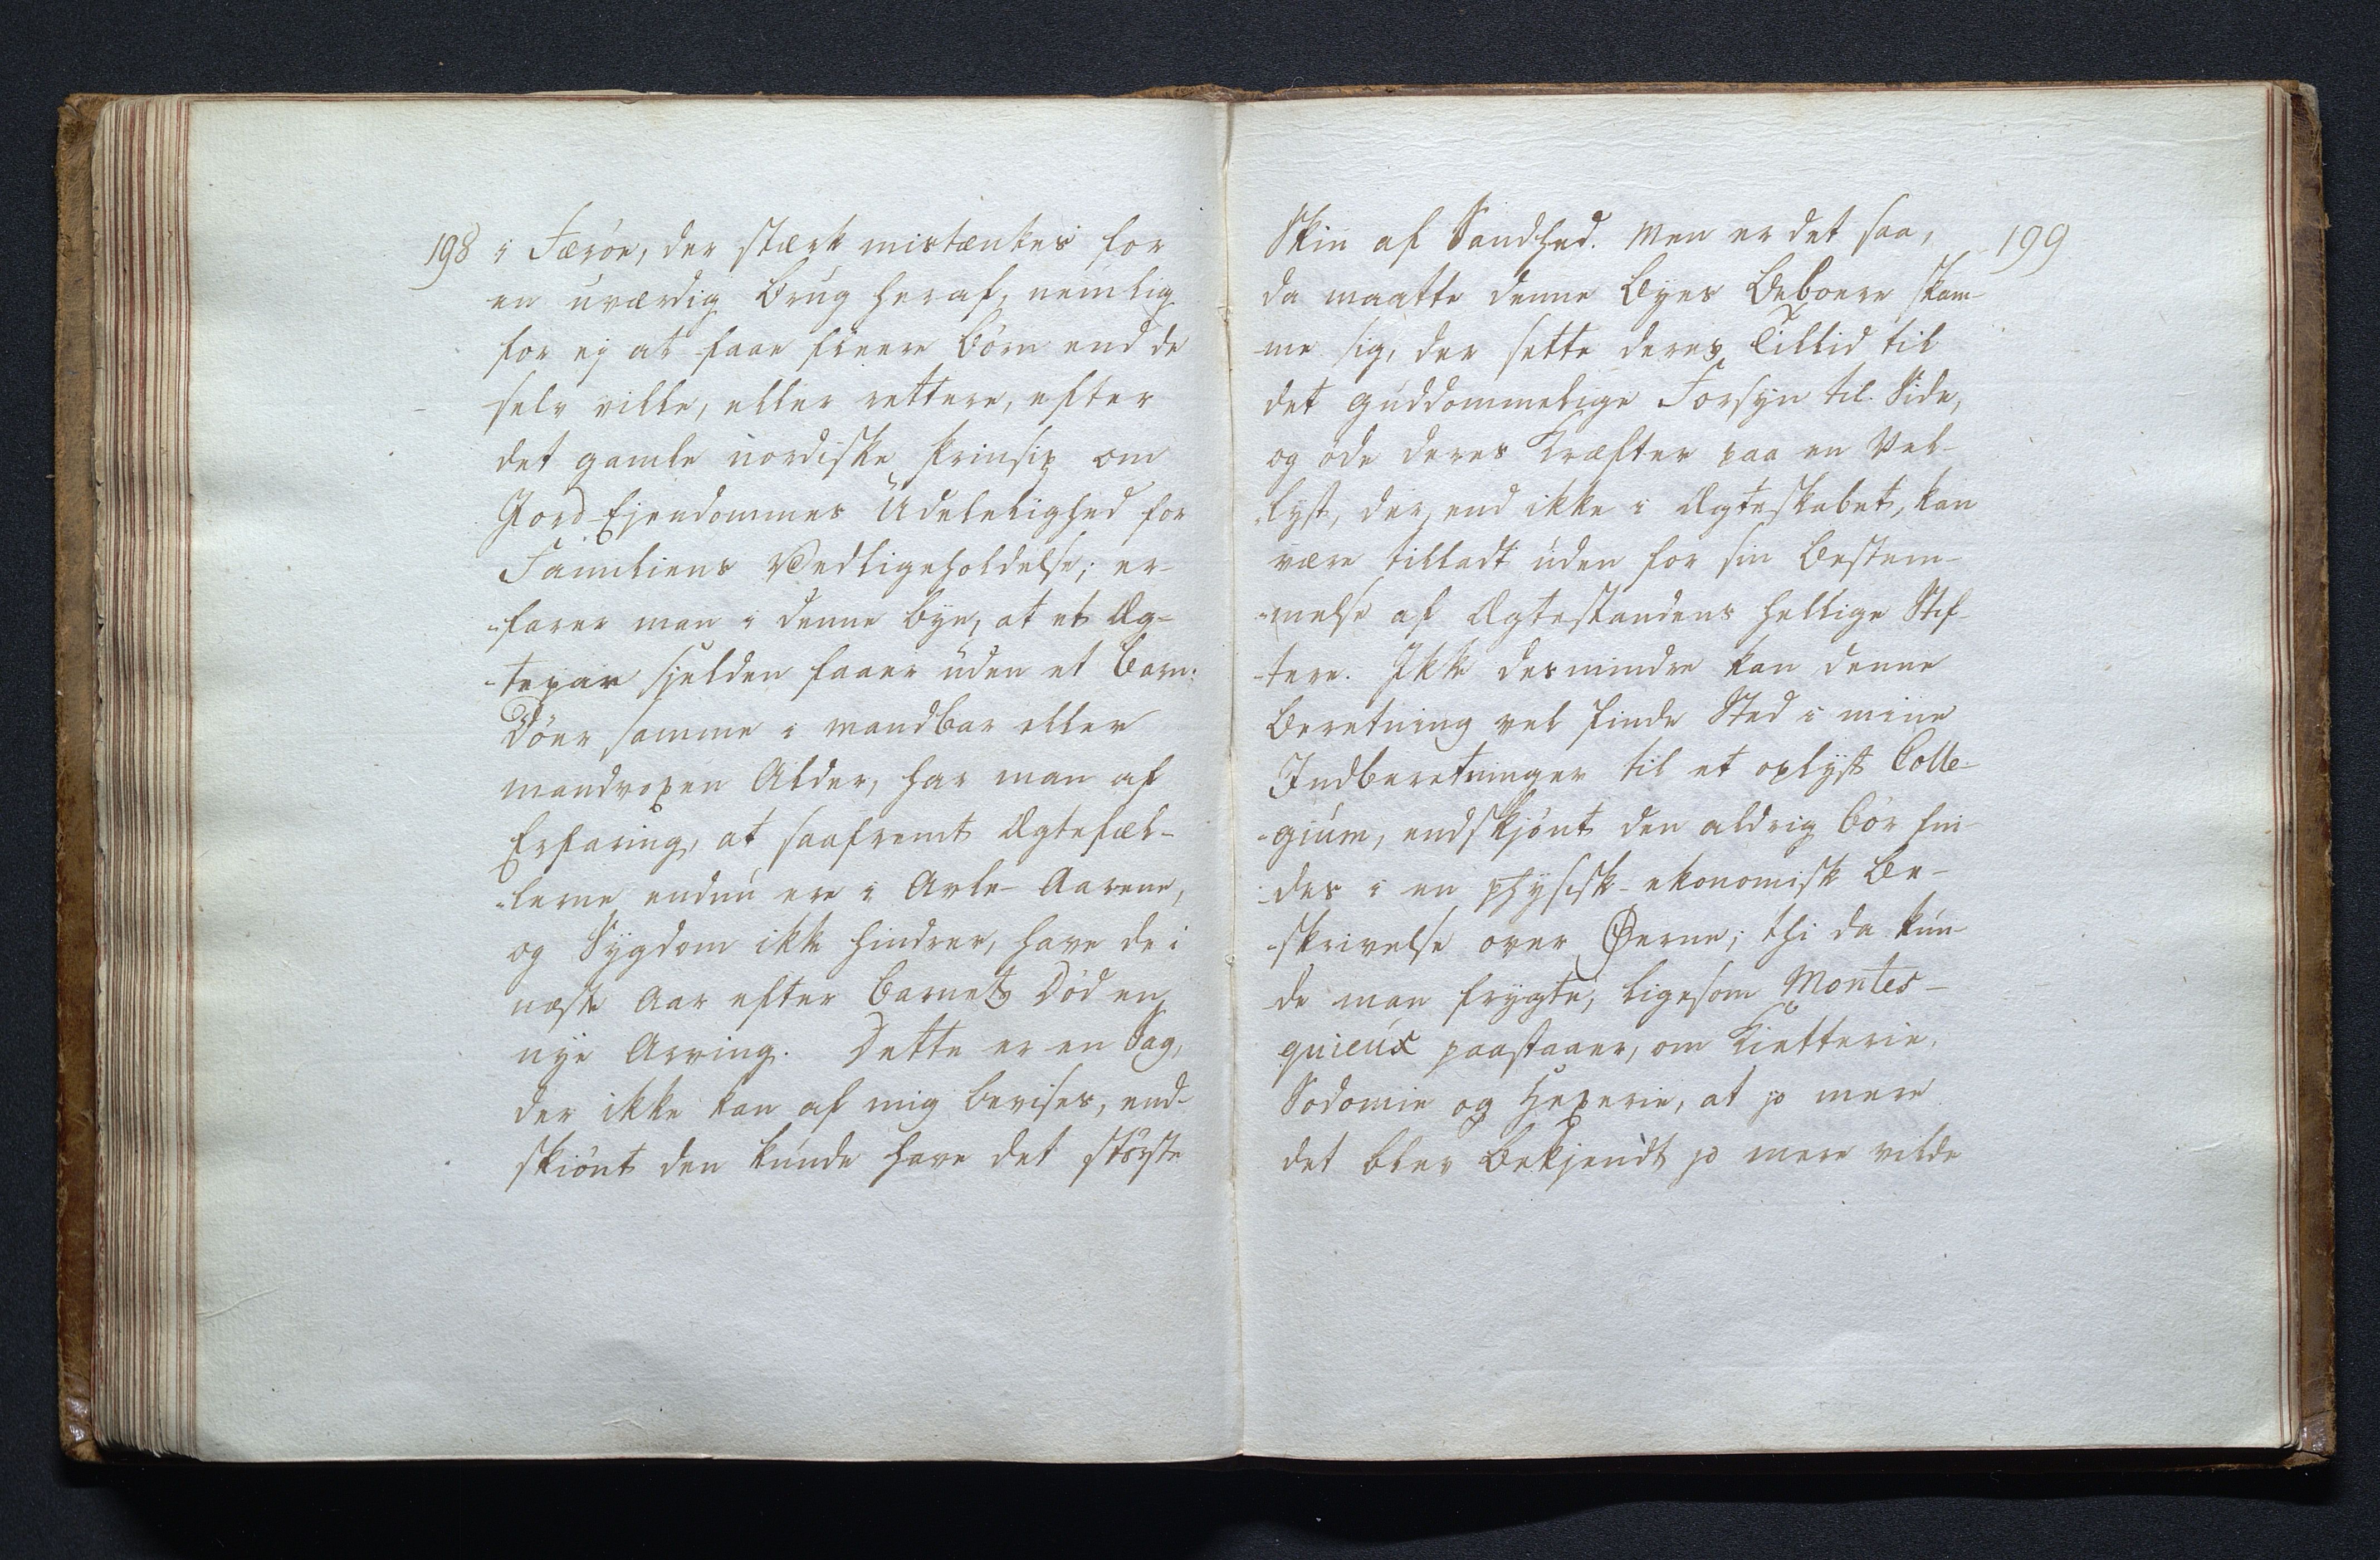 198 i Færöe, der stærk mistænkes for
en uværdig Brug heraf, nemlig
for ej at faae fleere Börn end de
selv ville, eller rettere, efter
det gamle nordiske Prinsip om
Jord-Ejendommes Udelelighed for
Familiens Vedligeholdelse; er-
-farer man i denne Bye, at et Æg-
-tepar sjelden faaer uden et Barn:
Döer samme i mandbar eller
mandvoxen Alder, har man af
Erfaring, at saafremt Ægtefæl-
-lerne endnu ere i Avle-Aarene,
og Sygdom ikke hindrer, have de i
næste Aar efter Barnets Död en
nye Arving. Dette er en Sag,
der ikke kan af mig bevises, end-
skiönt den kunde have det störste
Skin af Sandhed. Men er det saa, 199
da maatte denne Byes Beboere skam-
me sig, der sette deres Tillid til
det guddommelige Forsyn til Side,
og öde deres Kræfter paa en Vel-
-lyst, der, end ikke i Ægteskabet, kan
være tilladt uden for sin Bestem-
-melse af Ægtestandens hellige Stif-
-tere. Ikke desmindre kan denne
Beretning vel finde Sted i mine
Indberetninger til et oplyst Colle-
-gium, endskjönt den aldrig bör fin-
-des i en physisk-ekonomisk Be-
-skrivelse over Øerne; thi da kun-
de man frygte, ligesom Montes-
quieux paastaaer, om Kietterie,
Sodomie og Hexerie, at jo mere
det blev bekjendt jo mere vilde